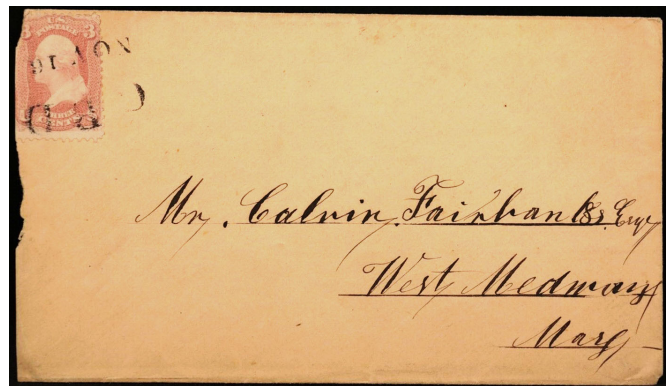 U.S.
POSTAGE
3 3
NOV 16
CENTS
Mr. Calvin Fairbanks, Esq
West Medway
Mass